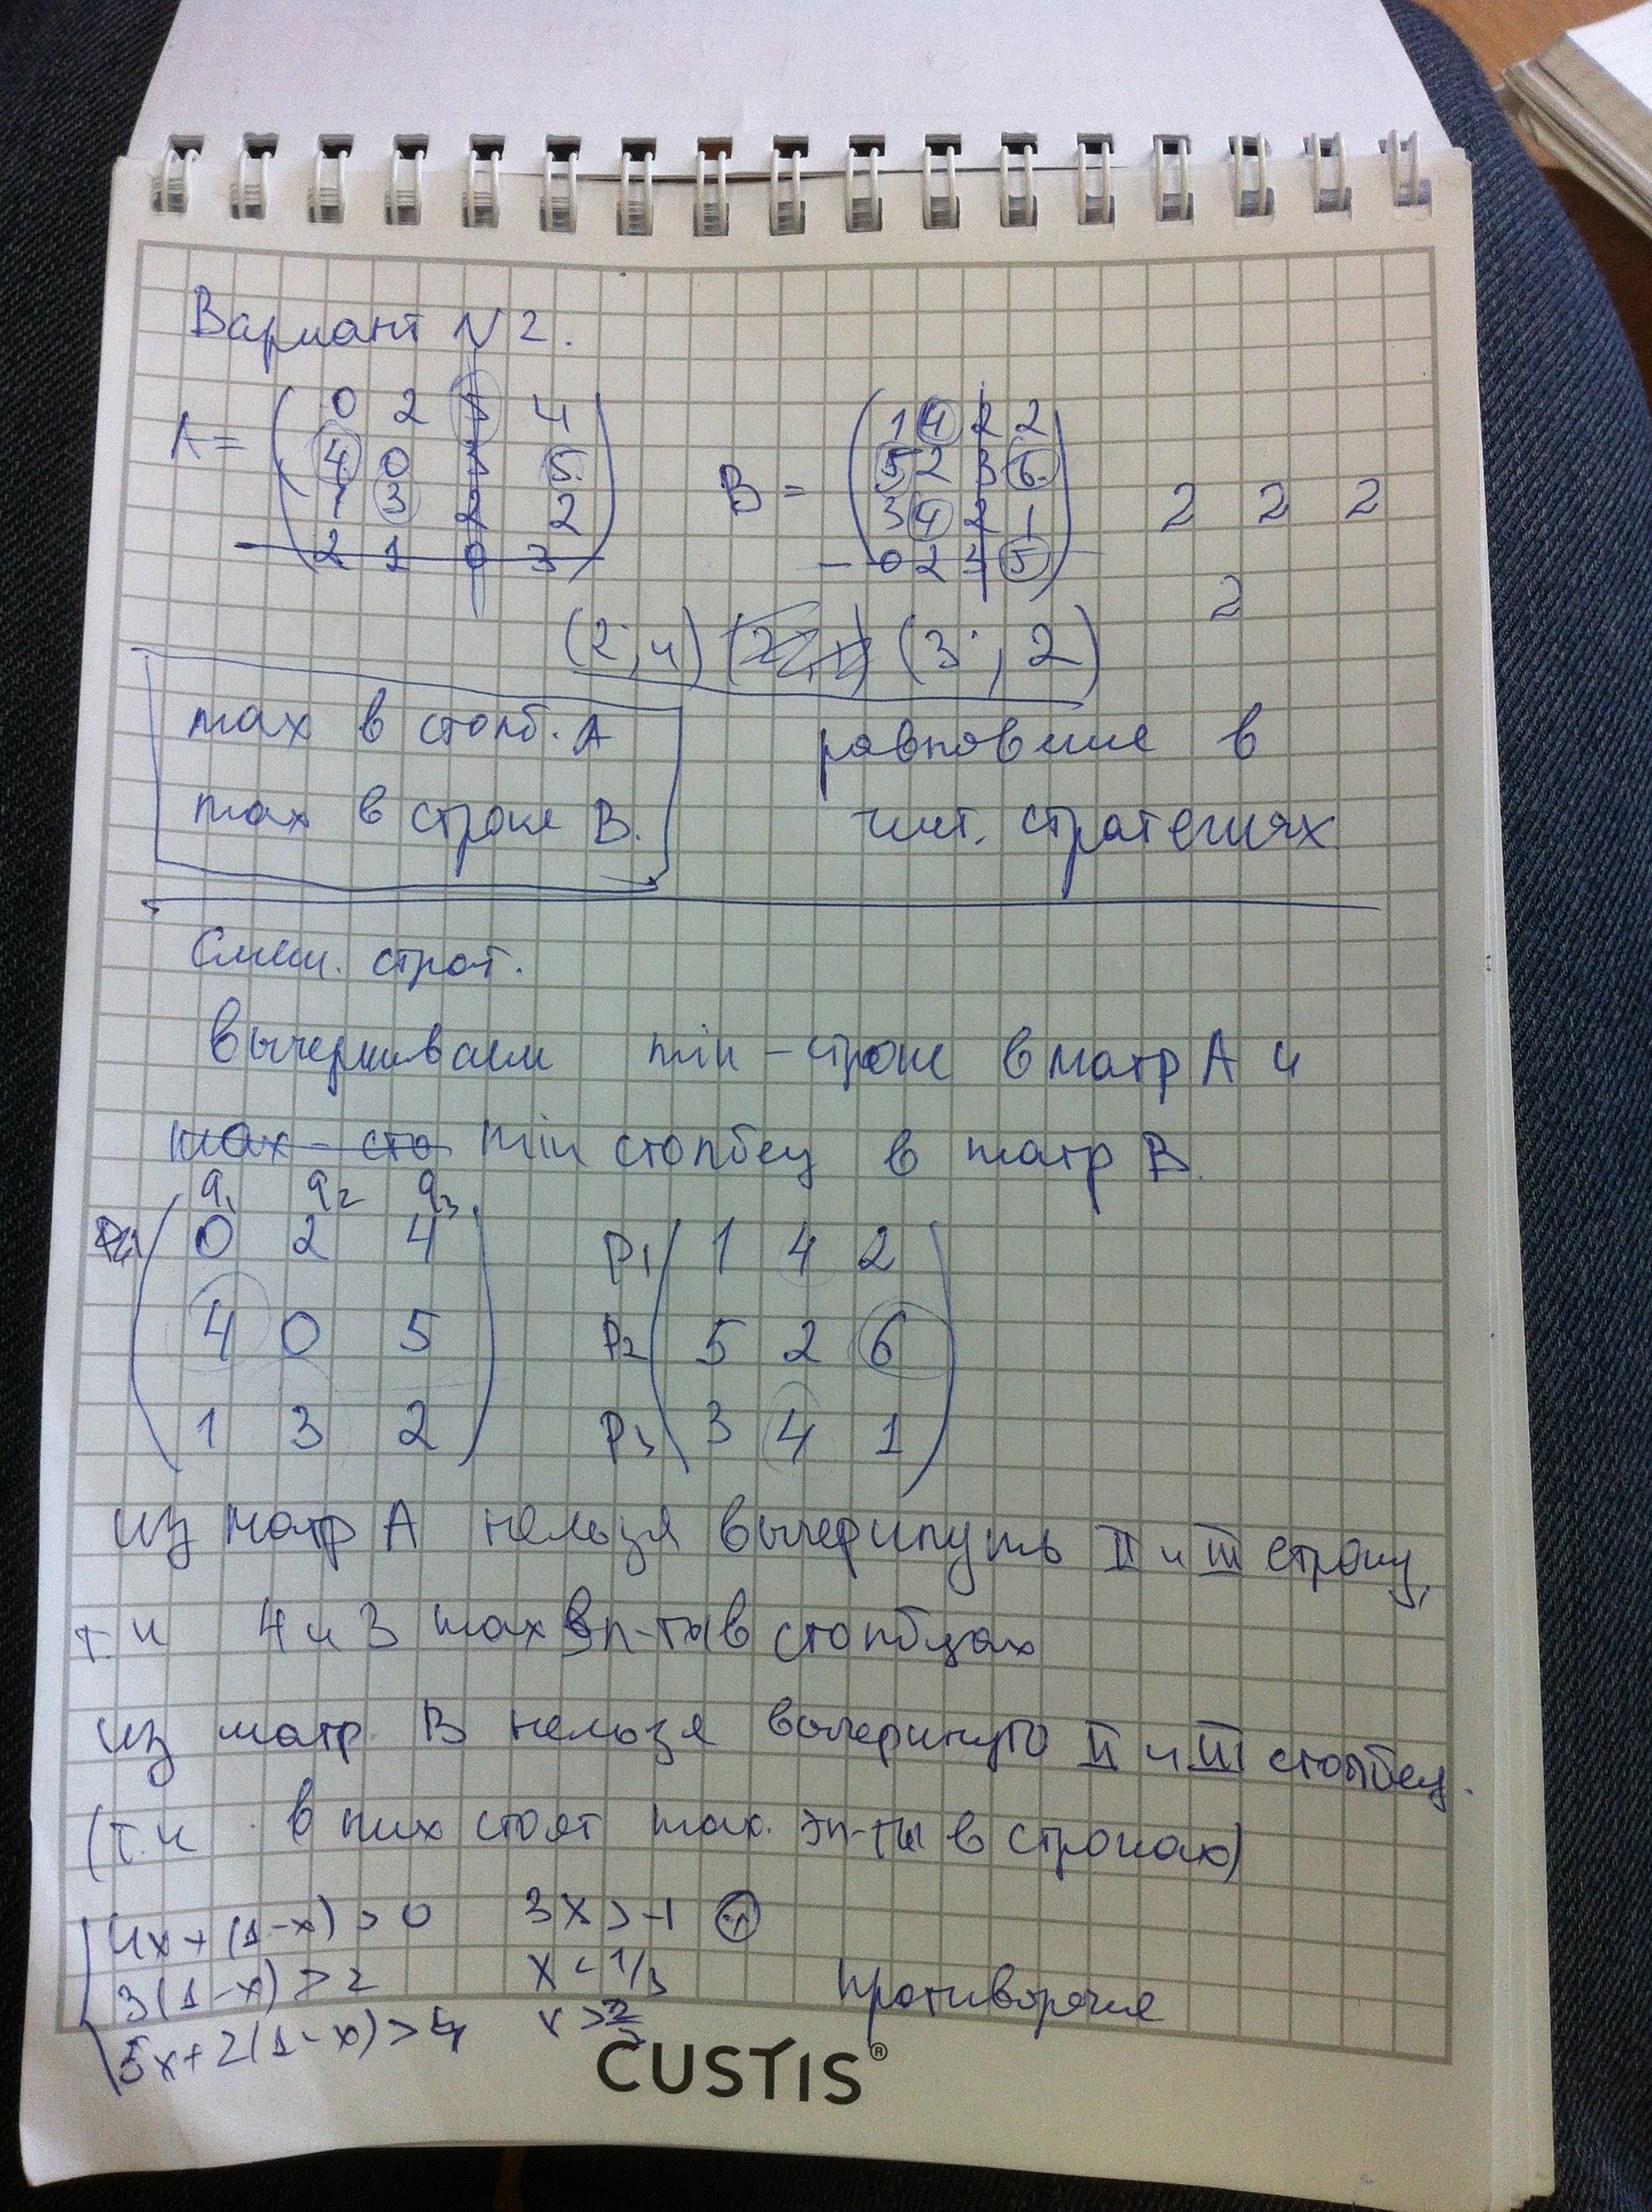 Вариант N 2.
A = ( 0 2 5 4
4 0 3 5
1 3 2 2
2 1 0 3 )
B = ( 1 4 2 2
5 2 3 6
3 4 2 1
0 2 3 5 )
2 2 2
2
(2; 4) (3; 2)
max в столб. A
max в строке B.
равновесие в
чист. стратегиях
Смеш. страт.
вычеркиваем min - строке в матр A и
max - сто min столбец в матр B.
q1 q2 q3
P1 ( 0 2 4
4 0 5
1 3 2 )
P1 ( 1 4 2
P2 5 2 6
P3 3 4 1 )
из матр A нельзя вычеркнуть II и III строку,
т.к 4 и 3 max эл-ты в столбцах
из матр. B нельзя вычеркнуть II и III столбец.
(т.к в них стоят max. эл-ты в строках)
4x + (1-x) > 0 3x > -1 +
3(1-x) > 2 x < 1/3
5x + 2(1-x) > 4 x > 2/3
противоречие
CUSTIS®